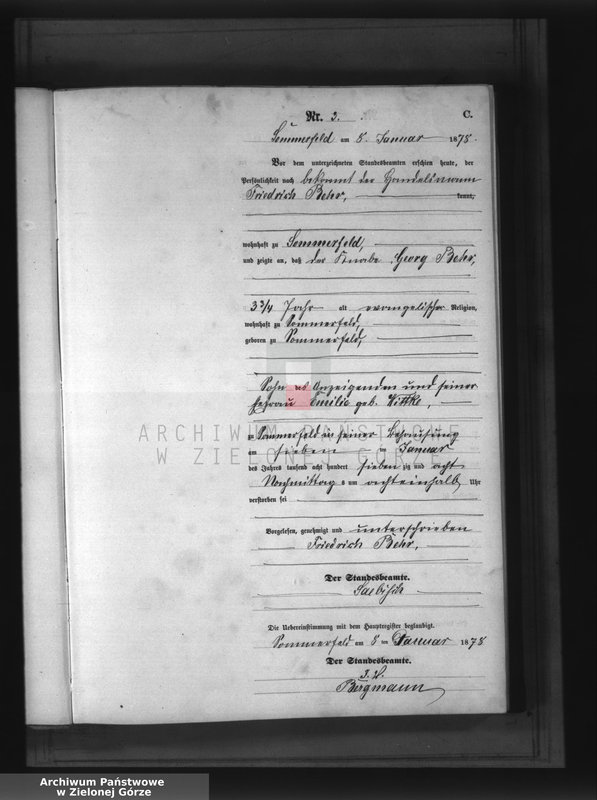 Nr. 3. C.
Sommerfeld am 8. Januar 1878.
Vor dem unterzeichneten Standesbeamten erschien heute, der
Persönlichkeit nach bekannt der Handelsmann
Friedrich Behr, kennt,
wohnhaft zu Sommerfeld,
und zeigte an, daß der Knabe Georg Behr,
3 3/4 Jahr alt evangelischer Religion,
wohnhaft zu Sommerfeld,
geboren zu Sommerfeld,
Sohn des Anzeigenden und seiner
Ehefrau Emilie geb. Wittke,
zu Sommerfeld in seiner Behausung
am sieben ten Januar
des Jahres tausend acht hundert sieben zig und acht
Nachmittags um achteinhalb Uhr
verstorben sei
Vorgelesen, genehmigt und unterschrieben
Friedrich Behr,
Der Standesbeamte.
Die Uebereinstimmung mit dem Hauptregister beglaubigt.
Sommerfeld am 8 ten Januar 1878
Der Standesbeamte.
Bergmann
ARCHIWUM PAŃSTWOWE
W ZIELONEJ GÓRZE
Archiwum Państwowe
w Zielonej Górze